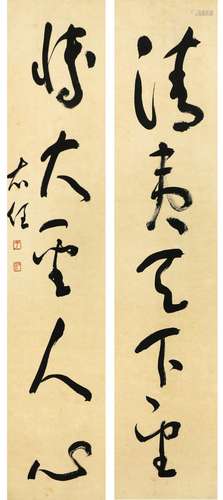 清夷天下望
博大聖人心
右任